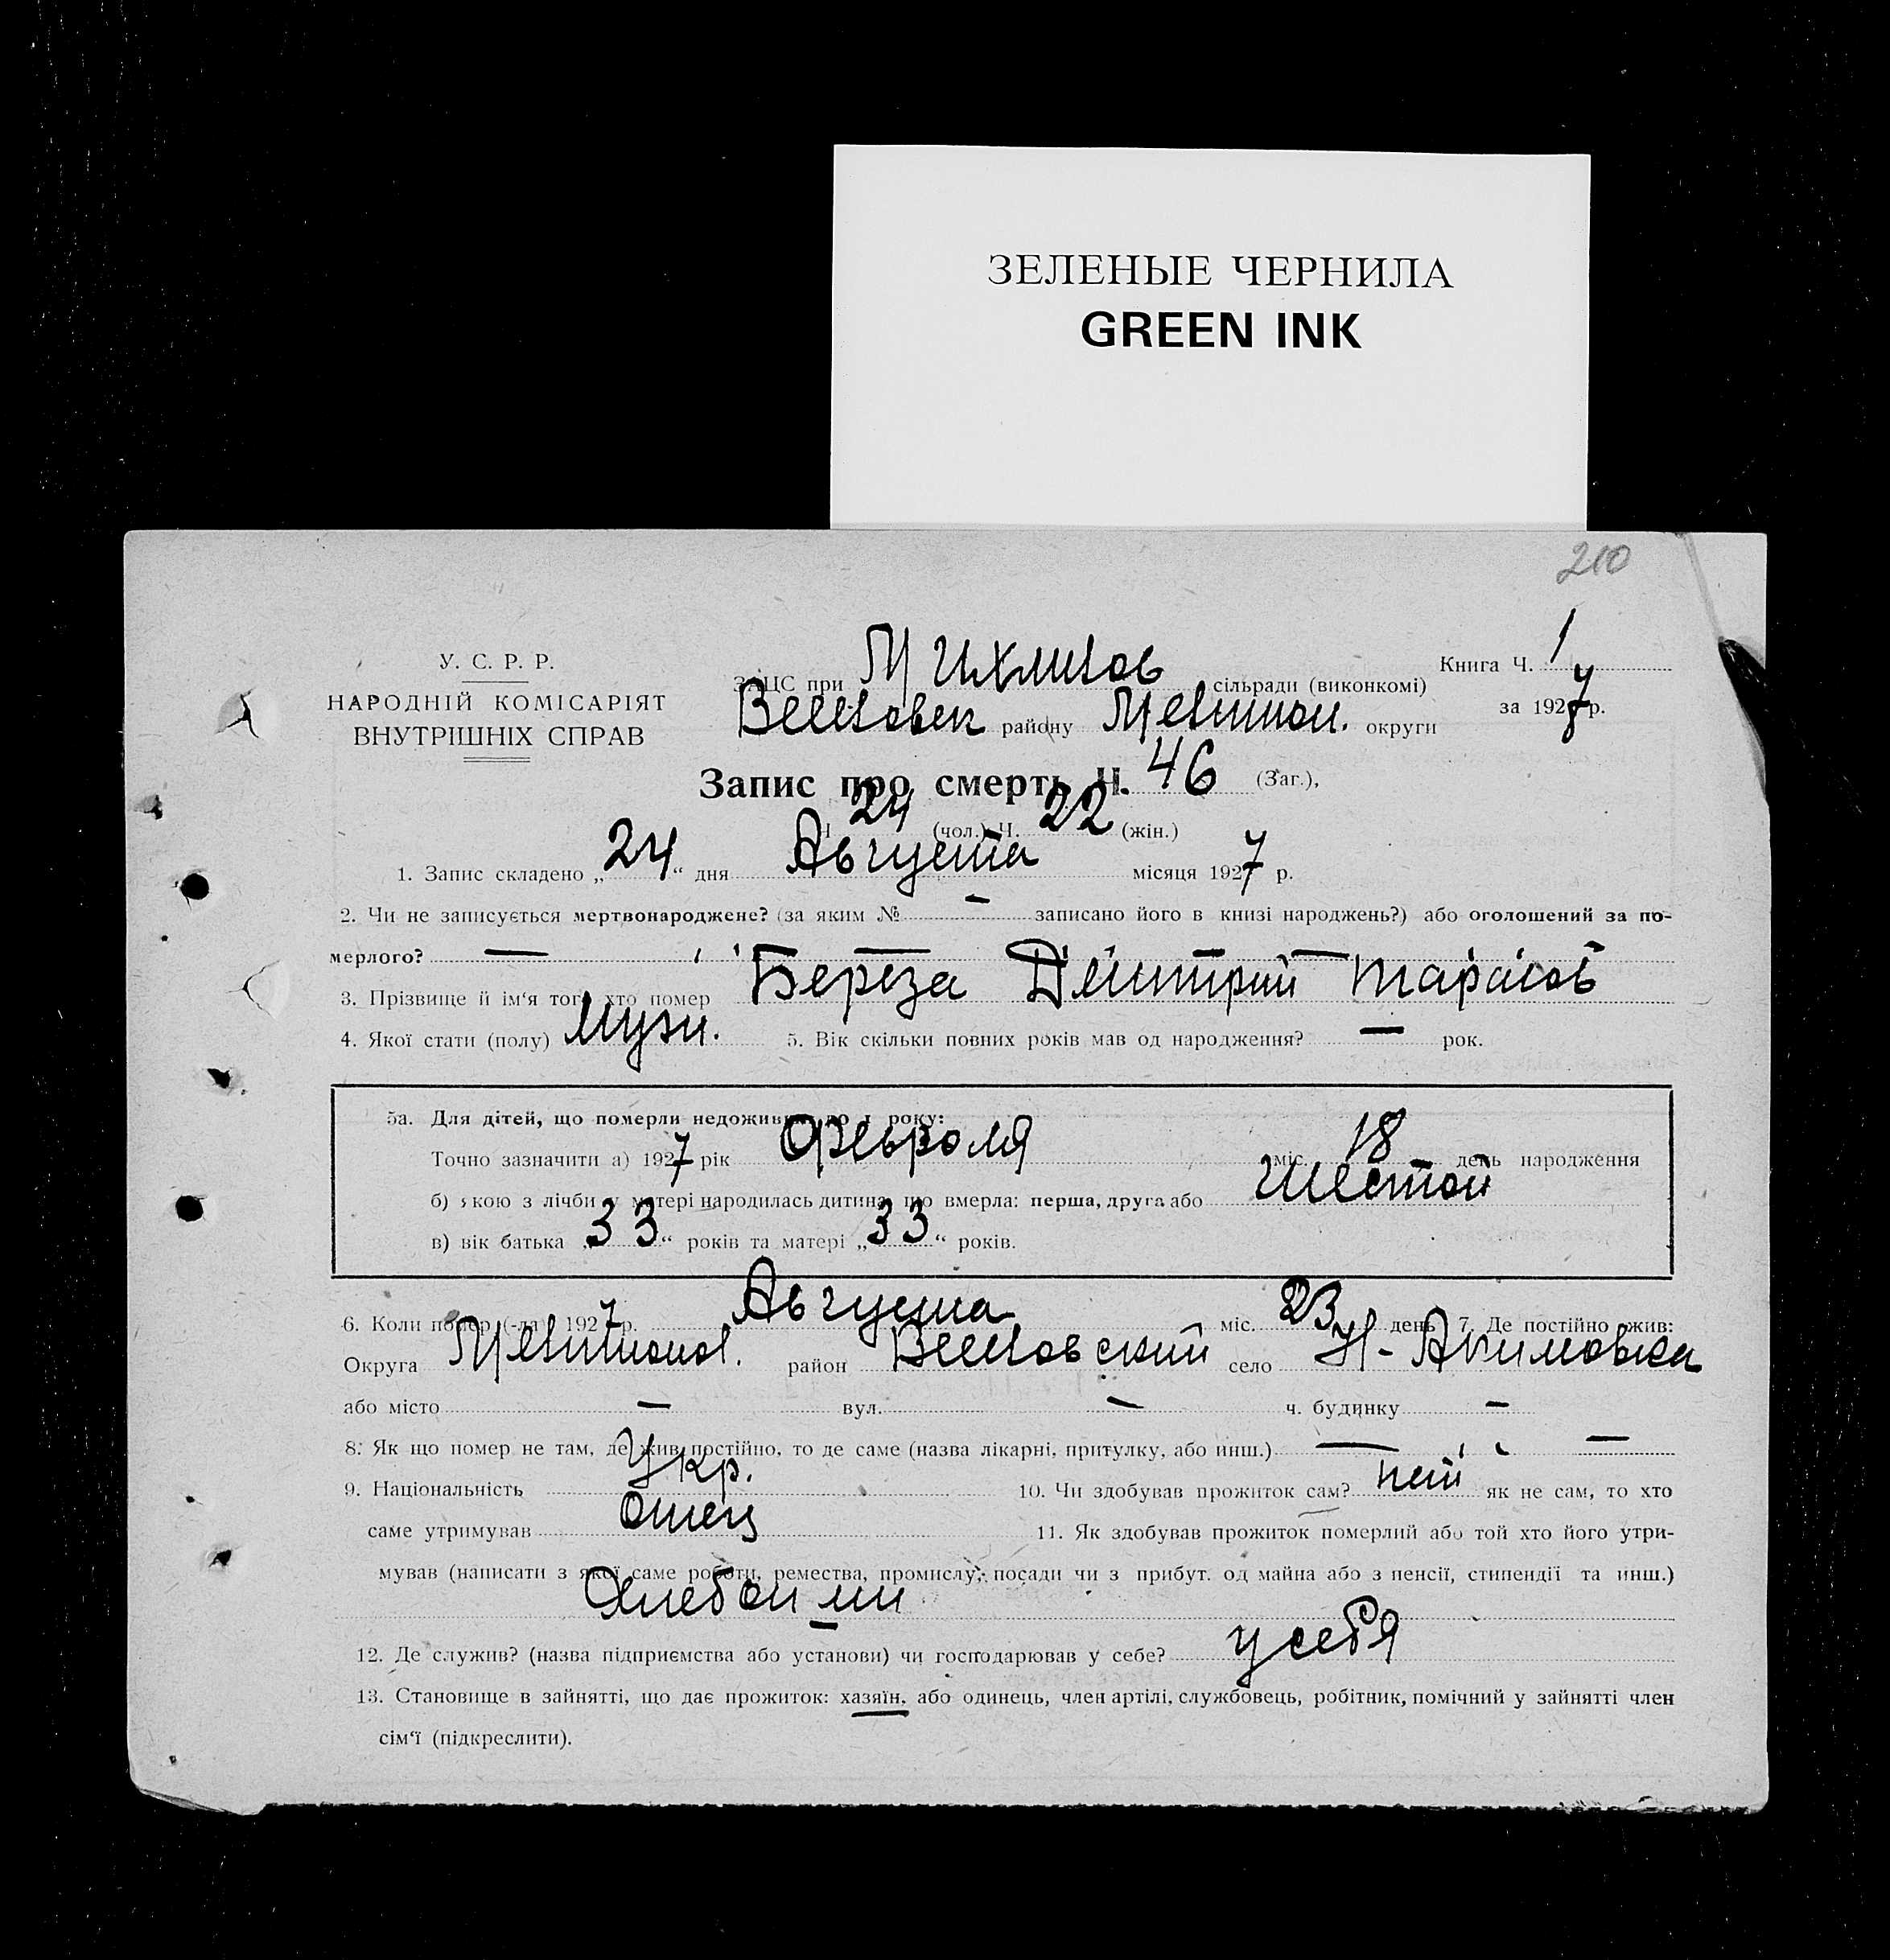 ЗЕЛЕНЫЕ ЧЕРНИЛА
GREEN INK
210
У. С. Р. Р.
НАРОДНІЙ КОМІСАРІЯТ
ВНУТРІШНІХ СПРАВ
ЗАЦС при сільради (виконкомі)
району округи
Книга Ч. 1
за 1927 р.
Запис про смерть Ч. 46 (Заг.),
Ч. 24 (чол.) Ч. 22 (жін.)
1. Запис складено „24“ дня Августа місяця 1927 р.
2. Чи не записується мертвонароджене? (за яким № — записано його в книзі народжень?) або оголошений за по-
мерлого? —
3. Прізвище й ім‘я того, хто помер Береза Дмитрий Тарасов
4. Якої стати (полу) Мужч. 5. Вік скільки повних років мав од народження? — рок.
5а. Для дітей, що померли недоживши до 1 року:
Точно зазначити а) 1927 рік Февроля міс. 18 день народження
б) якою з лічби у матері народилась дитина, що вмерла: перша, друга або шестой
в) вік батька „33“ років та матері „33“ років.
6. Коли помер (-ла) 1927 р. Августа міс. 23 день 7. Де постійно жив:
Округа район село Н-Акимовка
або місто — вул. — ч. будинку —
8. Як що помер не там, де жив постійно, то де саме (назва лікарні, притулку, або инш.) —
9. Національність Укр. 10. Чи здобував прожиток сам? нет як не сам, то хто
саме утримував отец 11. Як здобував прожиток померлий або той хто його утри-
мував (написати з якої саме роботи, ремества, промислу, посади чи з прибут. од майна або з пенсії, стипендії та инш.)
12. Де служив? (назва підприємства або установи) чи господарював у себе? у себя
13. Становище в зайнятті, що дає прожиток: хазяїн, або одинець, член артілі, службовець, робітник, помічний у зайнятті член
сім‘ї (підкреслити).